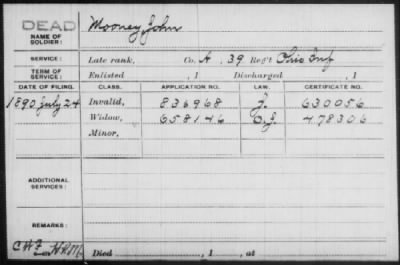 DEAD
NAME OF SOLDIER: Mooney, John
SERVICE: Late rank, Co. A, 39 Reg't Ohio Inf
TERM OF SERVICE: Enlisted , 1 Discharged , 1
DATE OF FILING. CLASS. APPLICATION NO. LAW. CERTIFICATE NO.
1890 July 24 Invalid, 836968 J. 630056
Widow, 658146 O.J. 478306
Minor,
ADDITIONAL SERVICES:
REMARKS:
Died , 1 , at